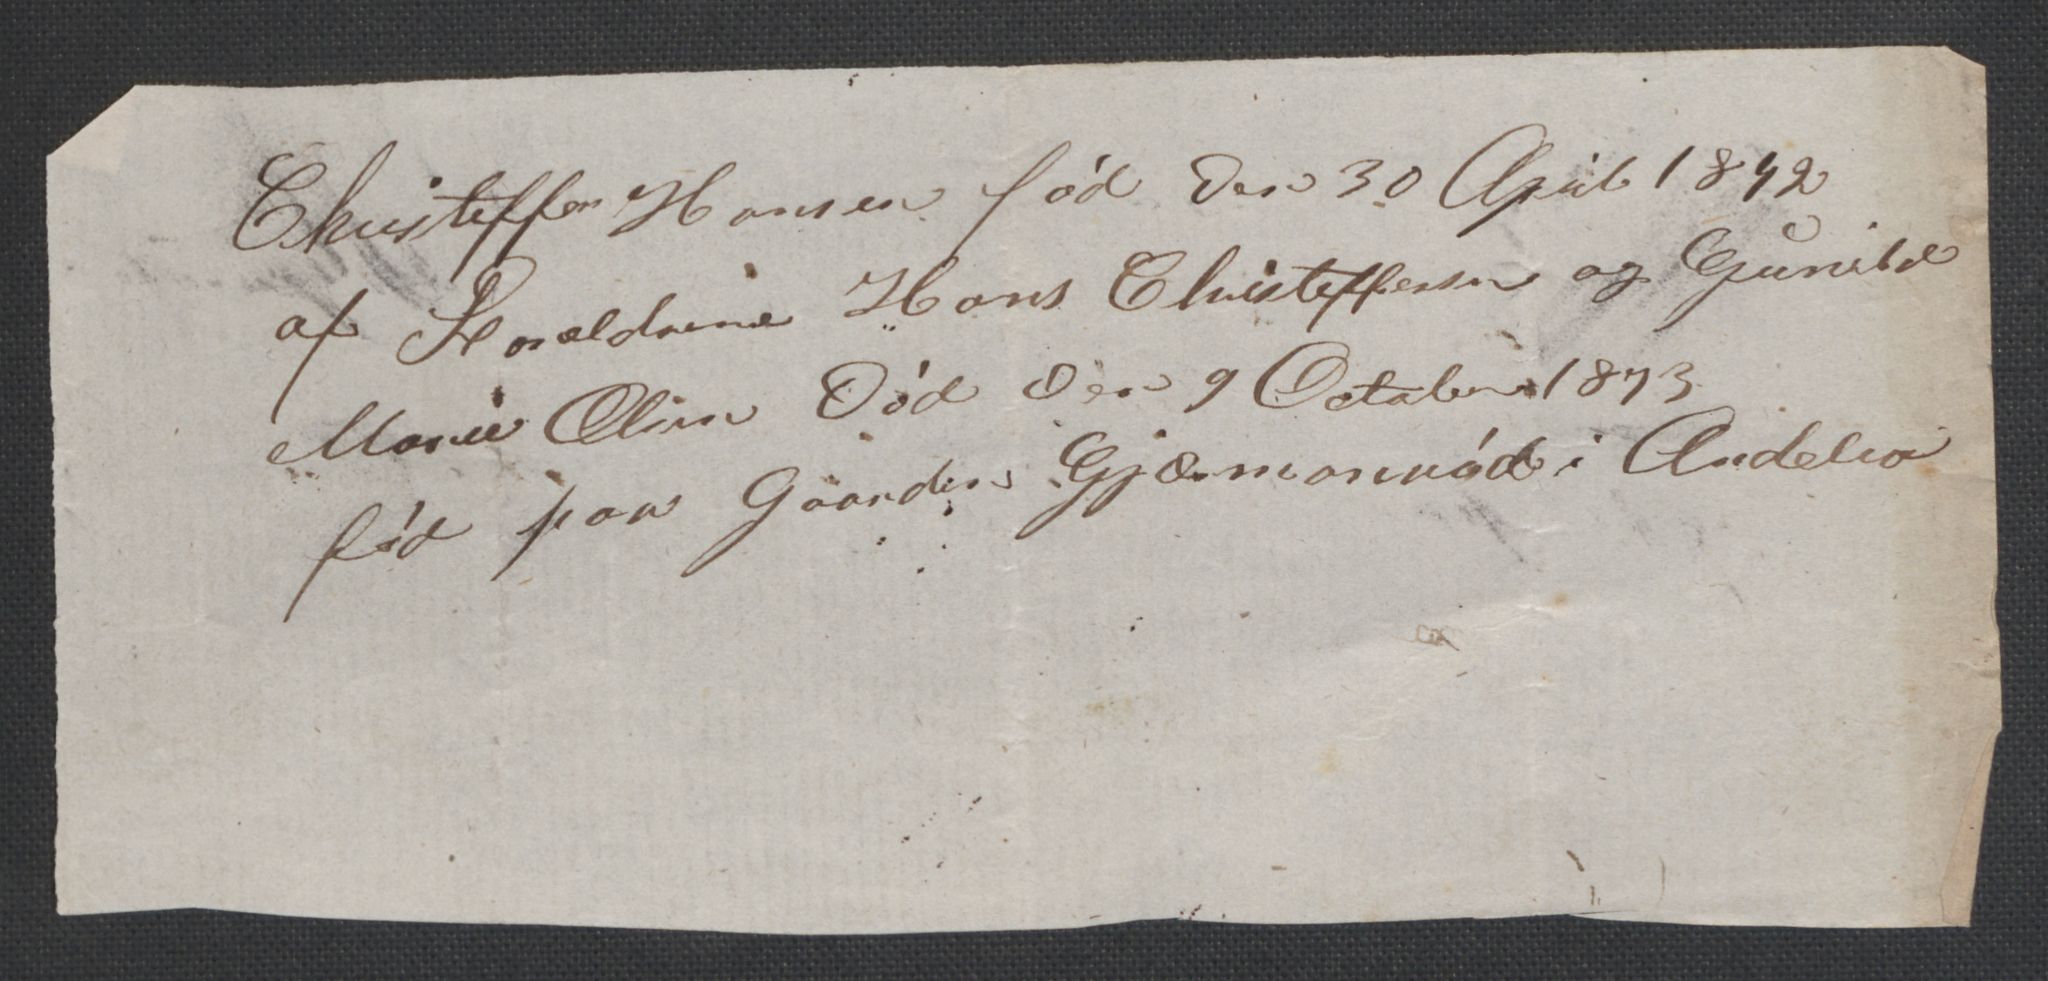 Christeffer Hansen fød den 30 April 1842
af Foræeldrene Hans Christeffersen og Gunild
Marie Olsen Død den 9 October 1873
fød paa Gaarden Gjærmanrød i Andebu